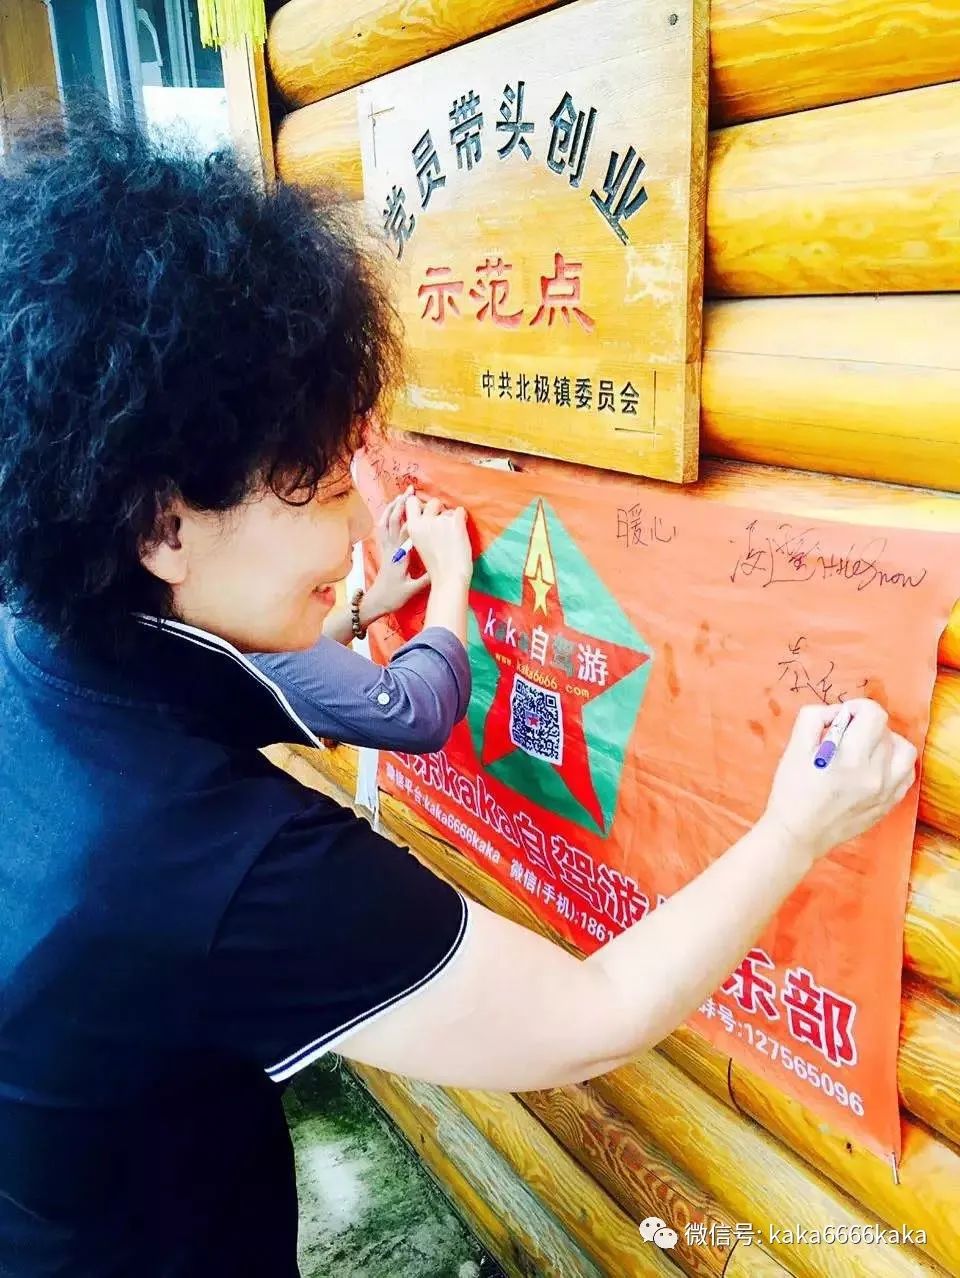 党员带头创业
示范点
中共北极镇委员会
暖心
kaka自驾游
www.kaka6666.com
kaka自驾游
乐部
kaka6666kaka
微信(手机):1861
群号:127565096
微信号: kaka6666kaka